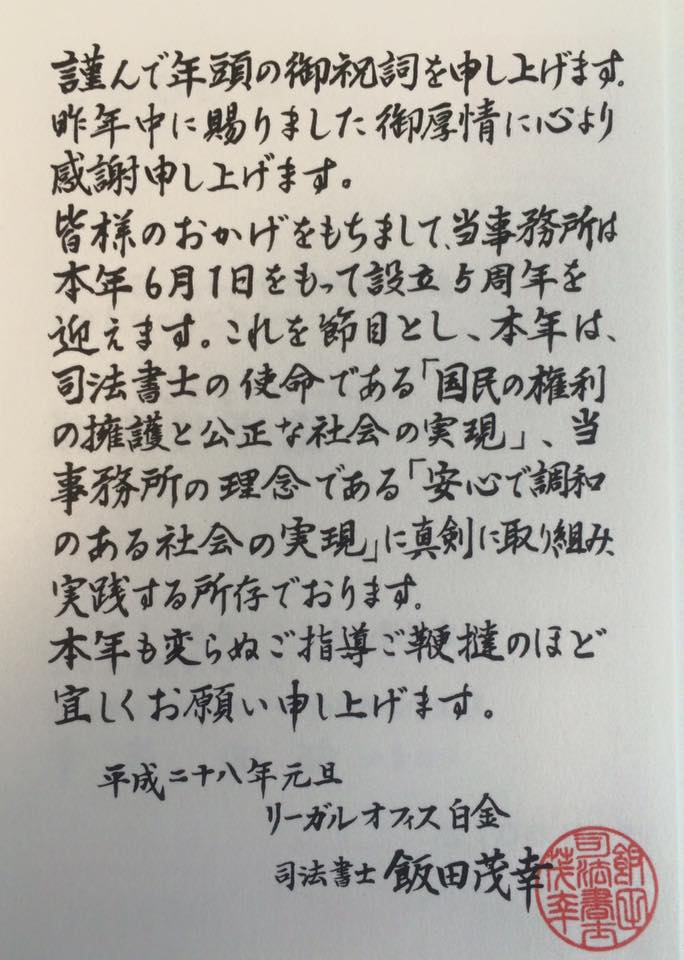 謹んで年頭の御祝詞を申し上げます。
昨年中に賜りました御厚情に心より
感謝申し上げます。
皆様のおかげをもちまして、当事務所は
本年6月1日をもって設立5周年を
迎えます。これを節目とし、本年は、
司法書士の使命である「国民の権利
の擁護と公正な社会の実現」、当
事務所の理念である「安心で調和
のある社会の実現」に真剣に取り組み、
実践する所存でおります。
本年も変らぬご指導ご鞭撻のほど
宜しくお願い申し上げます。
平成二十八年元旦
リーガルオフィス白金
司法書士 飯田茂幸
司法書士